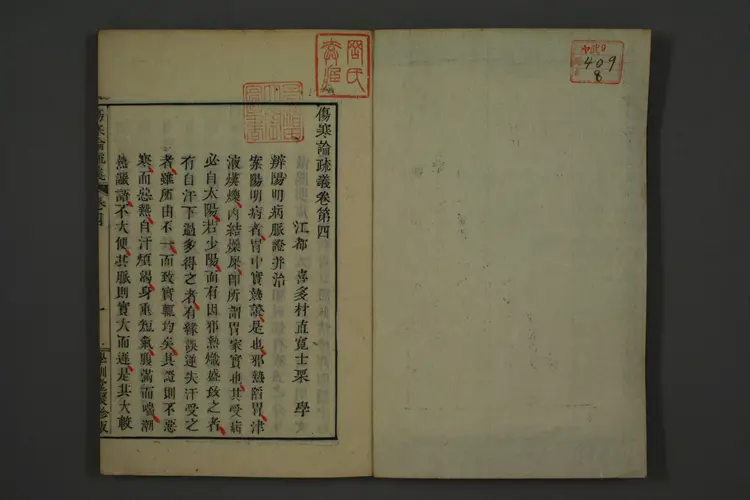 傷寒論疏義卷第四
江都 喜多村直寬士栗 學
辨陽明病脈證并治
案陽明病者胃中實熱證是也邪熱陷胃津
液熯爍内結燥屎卽所謂胃家實也其受病
必自太陽若少陽而有因邪熱熾盛致之者
有自汗下過多得之者有緣誤逆失汗受之
者雖所由不一而致實輒均矣其證則不惡
寒而惡熱自汗煩渴身重短氣腹滿而喘潮
熱讝語不大便其脈則實大而遲是其大較
傷寒論疏義 卷四
一
409
8